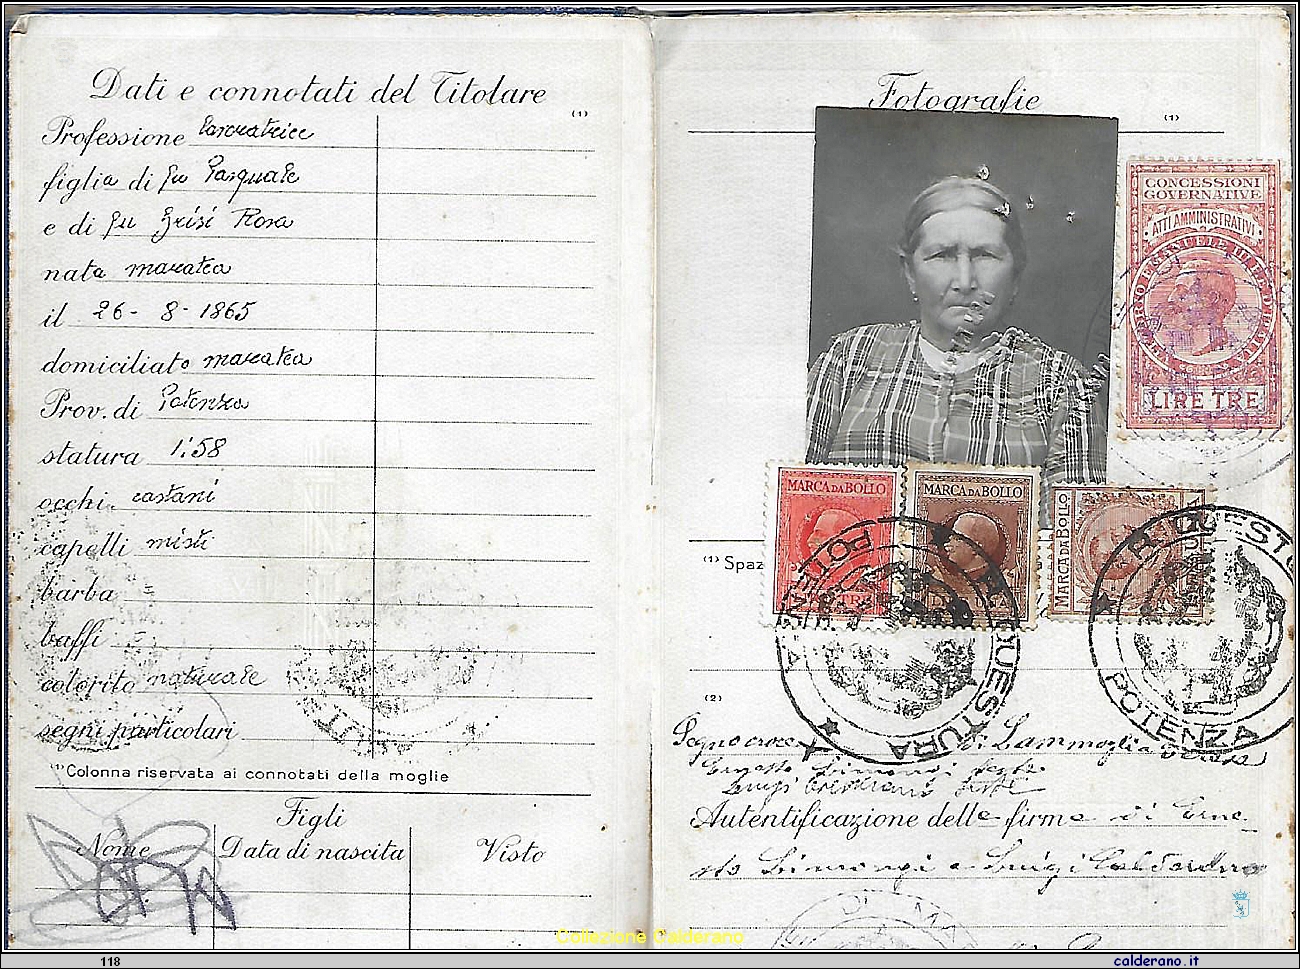 Dati e connotati del Titolare
(1)
Professione
figlia di fu Pasquale
e di fu Grisi Rosa
nata maratea
il 26 - 8 - 1865
domiciliato maratea
Prov. di Potenza
statura 1:58
occhi castani
capelli misti
barba
baffi
colorito naturale
segni particolari
(1) Colonna riservata ai connotati della moglie
Figli
Nome Data di nascita Visto
Fotografie
(1)
CONCESSIONI
GOVERNATIVE
ATTI AMMINISTRATIVI
LIRE TRE
MARCA DA BOLLO
MARCA DA BOLLO
MARCA DA BOLLO
(1) Spaz
R. QUESTURA
POTENZA
R. QUESTURA
POTENZA
(2)
Segno croce X di Lammoglia Teresa
Ernesto Limongi teste
Luigi Calderano teste
Autenticazione delle firme di Erne-
sto Limongi e Luigi Calderano
DI MA
Collezione Calderano
118
calderano.it